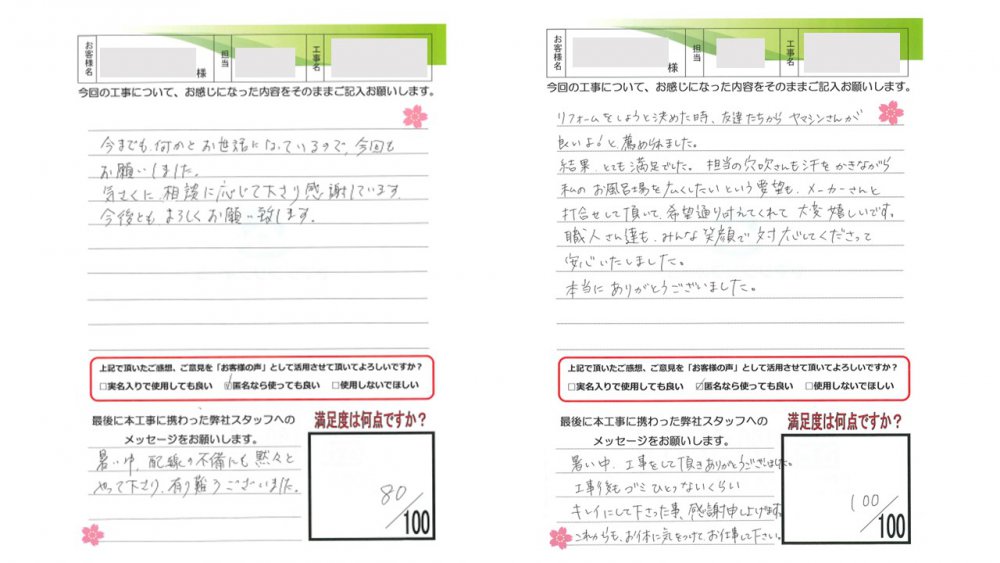 お客様名
様
担当
工事名
今回の工事について、お感じになった内容をそのままご記入お願いします。
今までも、何かとお世話になっているので、今回も
お願いしました。
気さくに相談に応じて下さり感謝しています。
今後とも、よろしくお願い致します。
上記で頂いたご感想、ご意見を「お客様の声」として活用させて頂いてよろしいですか？
□実名入りで使用しても良い ☑匿名なら使っても良い □使用しないでほしい
最後に本工事に携わった弊社スタッフへの
メッセージをお願いします。
暑い中、配線の不備にも黙々と
やって下さり、有り難うございました。
満足度は何点ですか？
80/100
お客様名
様
担当
工事名
今回の工事について、お感じになった内容をそのままご記入お願いします。
リフォームをしようと決めた時、友達たちから ヤマシンさんが
良いよ！と薦められました。
結果、とても満足でした。担当の穴吹さんも汗をかきながら
私のお風呂場を広くしたいという要望も、メーカーさんと
打合せして頂いて、希望通り叶えてくれて 大変嬉しいです。
職人さん達も、みんな笑顔で対応してくださって
安心いたしました。
本当にありがとうございました。
上記で頂いたご感想、ご意見を「お客様の声」として活用させて頂いてよろしいですか？
□実名入りで使用しても良い ☑匿名なら使っても良い □使用しないでほしい
最後に本工事に携わった弊社スタッフへの
メッセージをお願いします。
暑い中、工事をして頂きありがとうございました。
工事後もゴミひとつないくらい
キレイにして下さった事、感謝申し上げます。
これからも、お体に気をつけてお仕事して下さい。
満足度は何点ですか？
100/100